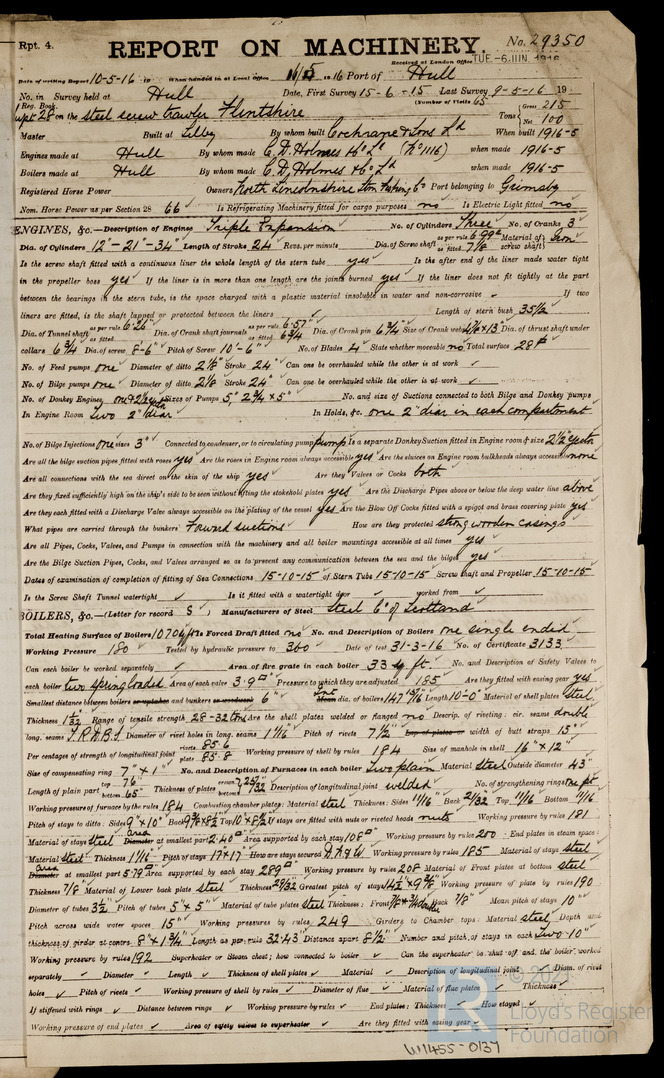 Rpt. 4.
REPORT ON MACHINERY.
No. 29350
Received at London Office TUE - 6 JUN. 1916
Date of writing Report 10-5-16 When handed in at Local Office 11/5 1916 Port of Hull
No. in Reg. Book. Survey held at Hull Date, First Survey 15-6-15 Last Survey 9-5-16 19
(Number of Visits 65
on the steel screw trawler Flintshire Tons Gross 215 Net 100
Master Built at Selby By whom built Cochrane & Sons Ld When built 1916-5
Engines made at Hull By whom made C. D. Holmes & Co Ld (No 1116) when made 1916-5
Boilers made at Hull By whom made C. D. Holmes & Co Ld when made 1916-5
Registered Horse Power Owners North Lincolnshire Stm Fishing Co Port belonging to Grimsby
Nom. Horse Power as per Section 28 66 Is Refrigerating Machinery fitted for cargo purposes no Is Electric Light fitted no
ENGINES, &c.—Description of Engines Triple Expansion No. of Cylinders Three No. of Cranks 3
Dia. of Cylinders 12"-21"-34" Length of Stroke 24 Revs. per minute Dia. of Screw shaft as per rule 6.99" as fitted 7 1/8 Material of screw shaft Iron
Is the screw shaft fitted with a continuous liner the whole length of the stern tube yes Is the after end of the liner made water tight
in the propeller boss yes If the liner is in more than one length are the joints burned yes If the liner does not fit tightly at the part
between the bearings in the stern tube, is the space charged with a plastic material insoluble in water and non-corrosive ✓ If two
liners are fitted, is the shaft lapped or protected between the liners Length of stern bush 35 1/2
Dia. of Tunnel shaft as per rule 6.26" as fitted Dia. of Crank shaft journals as per rule 6.57" as fitted 6 3/4 Dia. of Crank pin 6 3/4 Size of Crank webs 4 1/16 x 13 Dia. of thrust shaft under
collars 6 3/4 Dia. of screw 8'-6" Pitch of Screw 10'-6" No. of Blades 4 State whether moveable no Total surface 28 ft
No. of Feed pumps one Diameter of ditto 2 1/8 Stroke 24" Can one be overhauled while the other is at work ✓
No. of Bilge pumps one Diameter of ditto 2 1/8 Stroke 24" Can one be overhauled while the other is at work ✓
No. of Donkey Engines one Sizes of Pumps 5" 2 3/4 x 5" No. and size of Suctions connected to both Bilge and Donkey pumps
In Engine Room Two 2" diar In Holds, &c. one 2" diar in each compartment
No. of Bilge Injections one sizes 3" Connected to condenser, or to circulating pump pump Is a separate Donkey Suction fitted in Engine room & size 2 1/2" ejector
Are all the bilge suction pipes fitted with roses yes Are the roses in Engine room always accessible yes Are the sluices on Engine room bulkheads always accessible none
Are all connections with the sea direct on the skin of the ship yes Are they Valves or Cocks both
Are they fixed sufficiently high on the ship's side to be seen without lifting the stokehold plates yes Are the Discharge Pipes above or below the deep water line above
Are they each fitted with a Discharge Valve always accessible on the plating of the vessel yes Are the Blow Off Cocks fitted with a spigot and brass covering plate yes
What pipes are carried through the bunkers Forward suctions How are they protected strong wooden casings
Are all Pipes, Cocks, Valves, and Pumps in connection with the machinery and all boiler mountings accessible at all times yes
Are the Bilge Suction Pipes, Cocks, and Valves arranged so as to prevent any communication between the sea and the bilges yes
Dates of examination of completion of fitting of Sea Connections 15-10-15 of Stern Tube 15-10-15 Screw shaft and Propeller 15-10-15
Is the Screw Shaft Tunnel watertight ✓ Is it fitted with a watertight door ✓ worked from ✓
BOILERS, &c.—(Letter for record S) Manufacturers of Steel Steel Co of Scotland
Total Heating Surface of Boilers 1070 sq ft Is Forced Draft fitted no No. and Description of Boilers one single ended
Working Pressure 180 Tested by hydraulic pressure to 360 Date of test 31-3-16 No. of Certificate 3133
Can each boiler be worked separately ✓ Area of fire grate in each boiler 33 sq. ft. No. and Description of Safety Valves to
each boiler two spring loaded Area of each valve 3.9" Pressure to which they are adjusted 185 Are they fitted with easing gear yes
Smallest distance between boilers or uptakes and bunkers or woodwork 6" Mean dia. of boilers 147 13/16 Length 10-0" Material of shell plates steel
Thickness 1 1/32 Range of tensile strength 28-32 tons Are the shell plates welded or flanged no Descrip. of riveting: cir. seams double
long. seams T.R.D.B.S Diameter of rivet holes in long. seams 1 1/16 Pitch of rivets 7 1/2 Lap of plates or width of butt straps 15"
Per centages of strength of longitudinal joint rivets 85.6 plate 85.8 Working pressure of shell by rules 184 Size of manhole in shell 16" x 12"
Size of compensating ring 7" x 1" No. and Description of Furnaces in each boiler Two plain Material steel Outside diameter 43"
Length of plain part top 76" bottom 65" Thickness of plates crown bottom Description of longitudinal joint welded No. of strengthening rings
Working pressure of furnace by the rules 184 Combustion chamber plates: Material steel Thickness: Sides 11/16 Back 21/32 Top 11/16 Bottom 11/16
Pitch of stays to ditto: Sides 9" x 10" Back 9 3/8 x 8 1/2 Top 10 x 8 1/2 If stays are fitted with nuts or riveted heads nuts Working pressure by rules 181
Material of stays steel Area Diameter at smallest part 2.40" Area supported by each stay 108" Working pressure by rules 200 End plates in steam space:
Material steel Thickness 1 1/16 Pitch of stays 17 x 17 How are stays secured D.N.&W. Working pressure by rules 185 Material of stays steel
Area Diameter at smallest part 5.79" Area supported by each stay 289" Working pressure by rules 208 Material of Front plates at bottom steel
Thickness 7/8 Material of Lower back plate steel Thickness 29/32 Greatest pitch of stays 14 1/2 x 9 3/8" Working pressure of plate by rules 190
Diameter of tubes 3 1/2" Pitch of tubes 5" x 5" Material of tube plates steel Thickness: Front Back 7/8" Mean pitch of stays 10"
Pitch across wide water spaces 15" Working pressures by rules 249 Girders to Chamber tops: Material steel Depth and
thickness of girder at centre 8" x 1 3/4 Length as per rule 32.43" Distance apart 8 1/2" Number and pitch of stays in each Two 10"
Working pressure by rules 192 Superheater or Steam chest; how connected to boiler ✓ Can the superheater be shut off and the boiler worked
separately ✓ Diameter ✓ Length ✓ Thickness of shell plates ✓ Material ✓ Description of longitudinal joint ✓ Diam. of rivet
holes ✓ Pitch of rivets ✓ Working pressure of shell by rules ✓ Diameter of flue ✓ Material of flue plates ✓ Thickness ✓
If stiffened with rings ✓ Distance between rings ✓ Working pressure by rules ✓ End plates: Thickness ✓ How stayed ✓
Working pressure of end plates ✓ Area of safety valves to superheater ✓ Are they fitted with easing gear ✓
Lloyd's Register
Foundation
W1455-0137